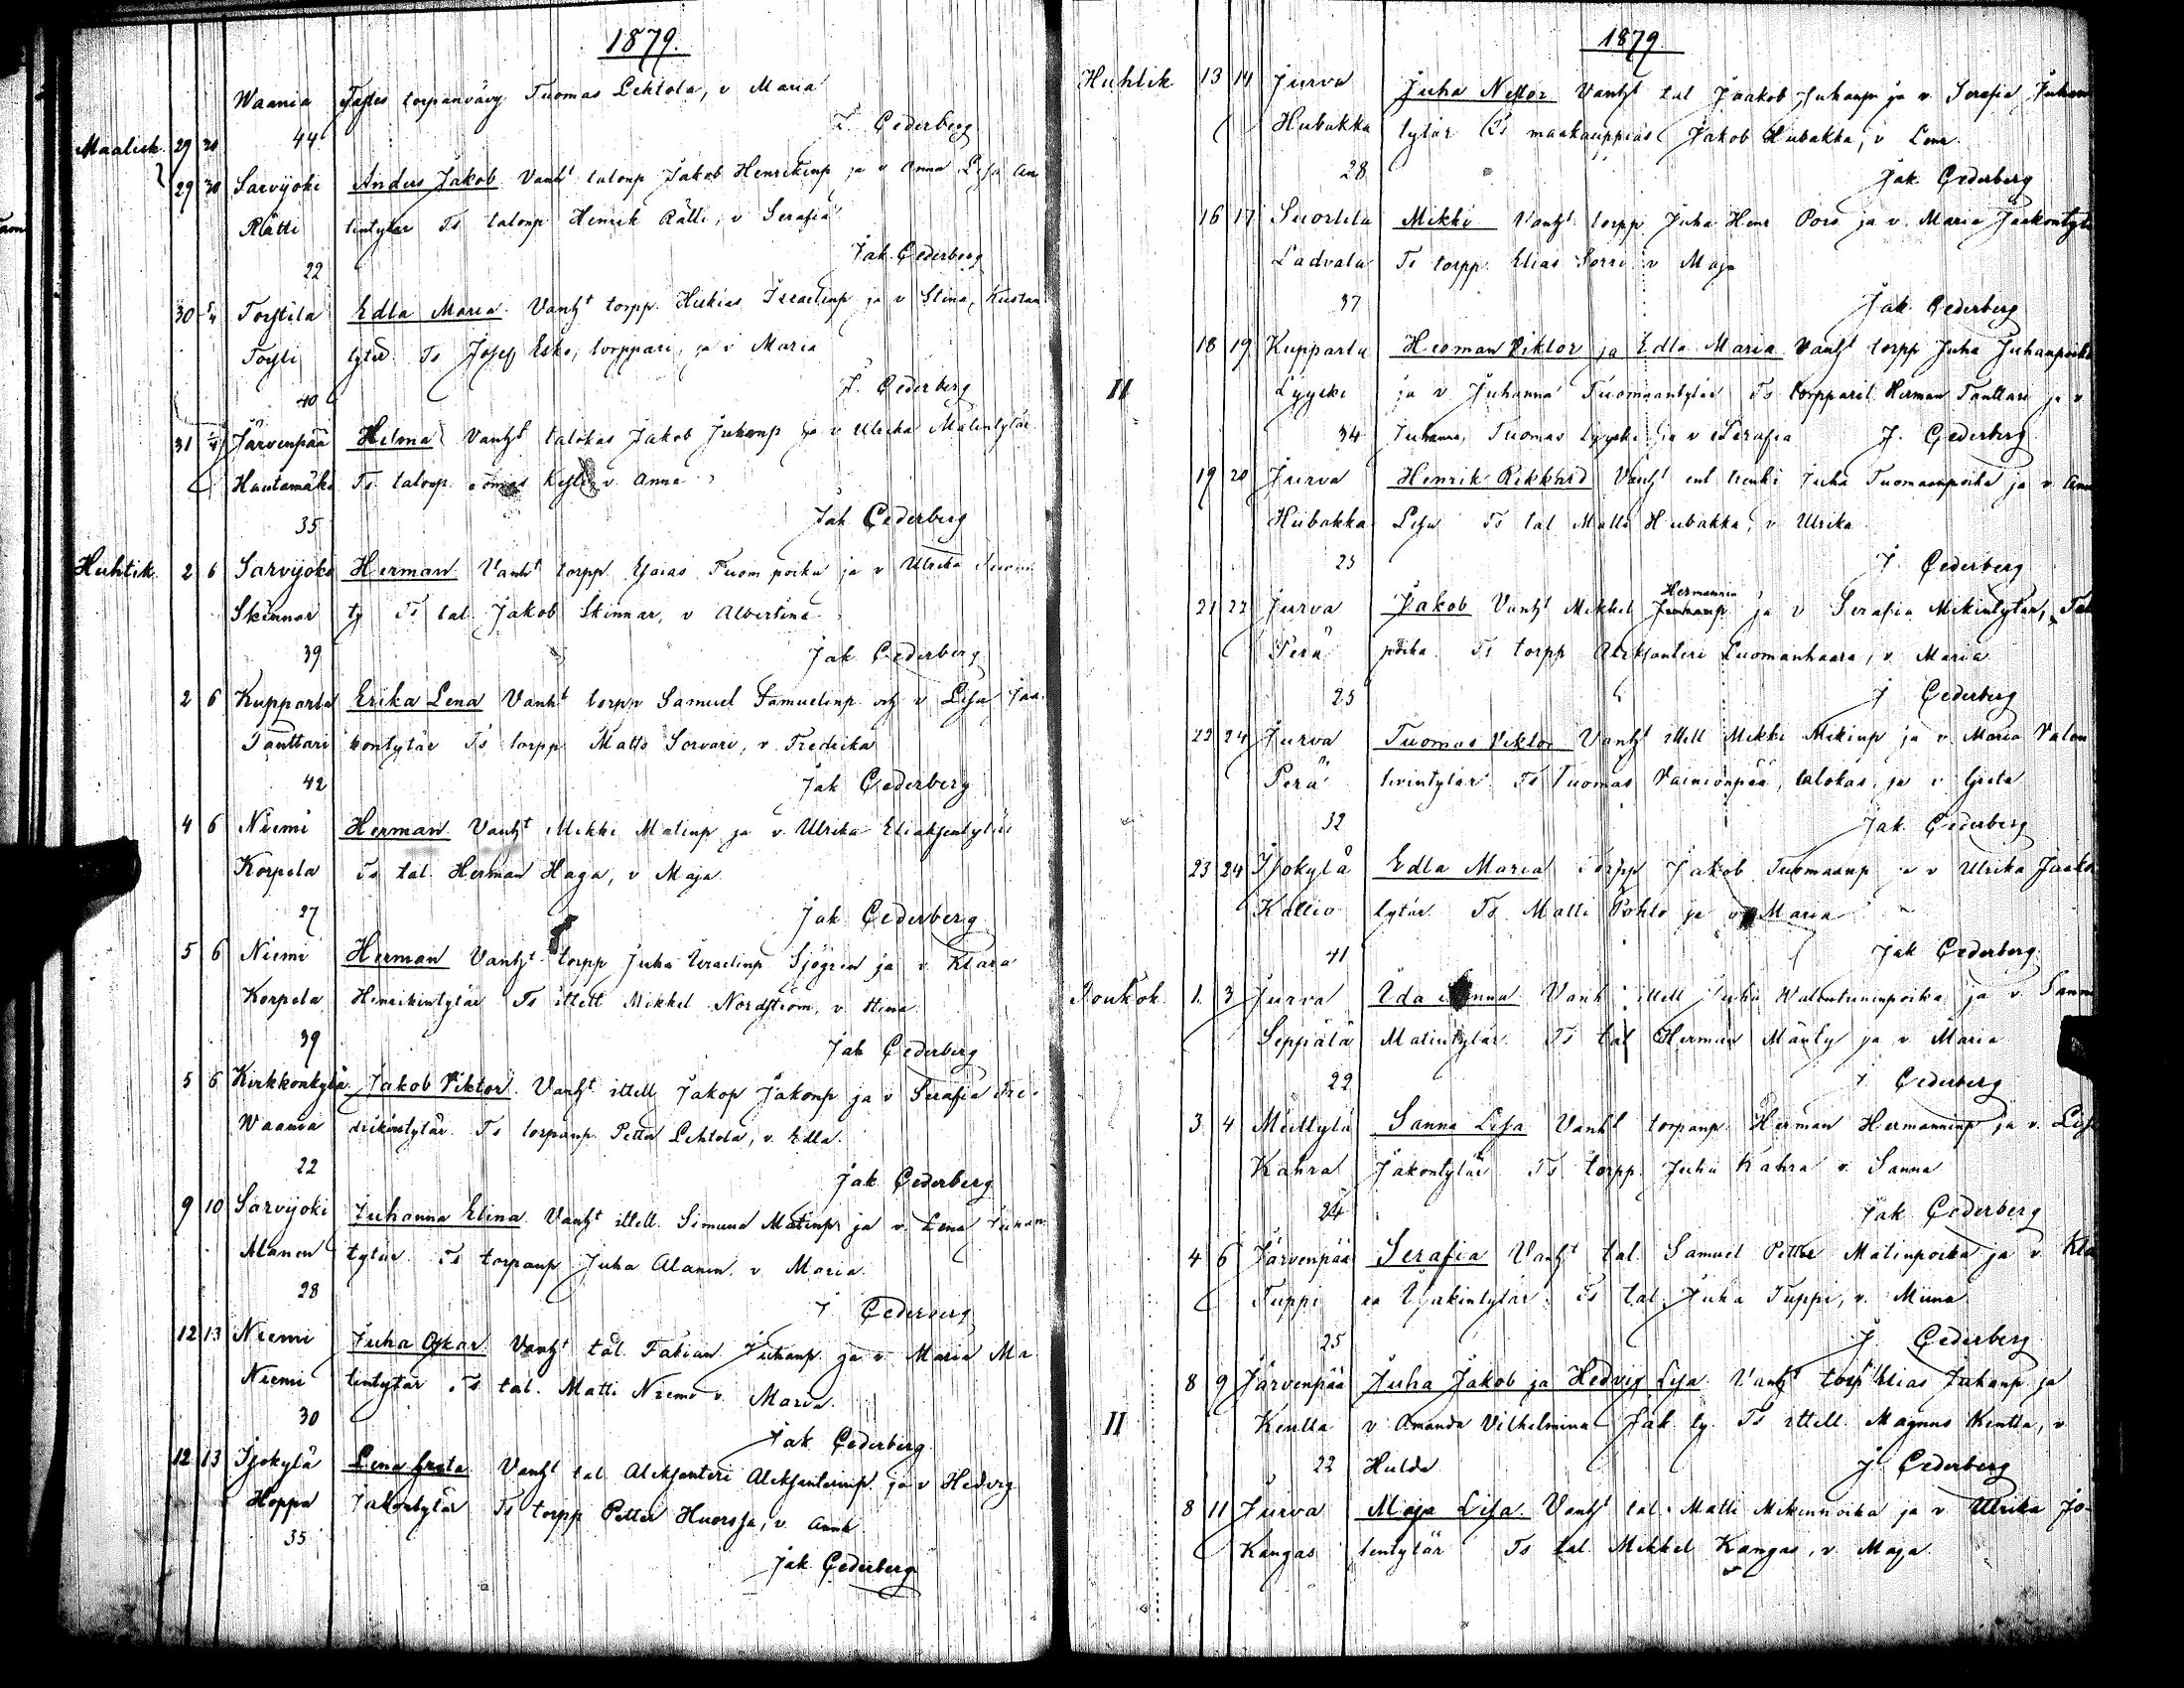 1879.
Waania torpanvävy Tuomas Lehtola, v Maria
44 J. Cederberg
Maalisk. 29 30
29 30 Sarvijoki Anders Jakob Vanht talonp Jakob Henrikinp ja v Anna Lisa An
Rätti tintytär Ts talonp Henrik Rätti, v Serafia
22 Jak. Cederberg
30 Torstila Edla Maria. Vanht torpp. Israelinp ja v Stina, Kustaa
tytär. Ts Josef Esko, torppari, ja v Maria
40 J. Cederberg
31 Järvenpää Helma Vanht talokas Jakob Juhanp ja v Ulrika Matintytär
Hautamäki Ts talonp. v Anna
35 Jak Cederberg
Huhtik. 2 6 Sarvijoki Herman Vanht torpp Esaias Tuom poika ja v Ulrika
Skinnar ty Ts tal. Jakob Skinnar, v Albertina
39 Jak Cederberg
2 6 Kupparla Erika Lena Vanht torpp Samuel Samuelinp och v Lisa Jaa
Tanttari kontytär Ts torpp Matts Sorvari, v Fredrika
42 Jak Cederberg
4 6 Niemi Herman. Vanht Mikki Matinp ja v. Ulrika
Korpela Ts tal. Herman Haga, v Maja
27 Jak Cederberg
5 6 Niemi Herman Vanht torpp Juha Israelinp Sjögren ja v Klara
Korpela Henrikintytär Ts ittell Mikkel Nordström, v Stina
39 Jak Cederberg
5 6 Kirkkonkylä Jakob Viktor. Vanht ittell Jakop Jakonp ja v Serafia Fre-
Waania drikintytär. Ts torpanp Petter Lehtola, v. Edla.
22 Jak Cederberg
9 10 Sarvijoki Juhanna Elina. Vanht ittell. Simuna Matinp ja v. Lena Juhan
Alanen tytär. Ts torpanp Juha Alanen. v Maria.
28 J Cederberg
12 13 Niemi Juha Oskar Vanht tal. Fabian Juhanp. ja v. Maria Ma
Niemi tintytär Ts tal. Matti Niemi v. Maria.
30 Jak Cederberg
12 13 Isokylä Lena Greta Vanht tal Aleksanteri Aleksanterinp. ja v Hedvig
Hoppa Jakontytär Ts torpp Petter, v. Anna
35
Jak Cederberg
1879.
Huhtik 13 14 Jurva Juha Nestor Vanht tal Jaakob Juhanp ja v Serafia Juhan
Hubakka tytär Ts maakauppias Jakob Hubakka, v Lena.
28 Jak. Cederberg
16 17 Suorttila Mikki Vanht. torpp. Juha Henr Poro ja v. Maria Jaakontytä
Ladvala Ts torpp Elias Sorri v Maja
37 Jak. Cederberg
18 19 Kupparla Herman Viktor ja Edla Maria Vanht torpp Juha Juhanpoika
II Lyyski ja v Juhanna Tuomaantytär Ts torpparit Herman Tanttari ja v
34 Juhanna, Tuomas Lyyski ja v Serafia J. Cederberg
19 20 Jurva Henrik Rikkard Vanht ent renki Juha Tuomaanpoika ja v Anna
Hubakka Lisa Ts tal Matts Hubakka, v Ulrika
25 J. Cederberg
Hermannin
21 22 Jurva Jakob Vanht Mikkel Juhanp ja v Serafia Mikintytär,
Perä poika. Ts torpp Aleksanteri Luomanhaara, v Maria
25 J Cederberg
22 24 Jurva Tuomas Viktor Vanht ittell Mikki Mikinp ja v Maria Valen
Perä tinintytär Ts Tuomas Vainionpää, talokas, ja v Greta
32 Jak. Cederberg
23 24 Isokylä Edla Maria torpp Jakob Tuomaanp ja v Ulrika Jaako
Kallio tytär. Ts. Matti Pohto ja v Maria
41 Jak Cederberg
Toukok. 1. 3 Jurva Ida Sanna Vanh ittell Juha Walentininpoika ja v Sanna
Seppälä Matintytär. Ts tal Herman Mänty ja v Maria
22 J Cederberg
3 4 Miettylä Sanna Lisa Vanht torpanp. Herman Hermanninp ja v. Lisa
Kahra Jakontytär Ts torpp. Juha Kahra v. Sanna
24 Jak Cederberg
4 6 Järvenpää Serafia Vanht tal. Samuel Petter Matinpoika ja v Kla
Tuppi ra Isakintytär. Ts tal. Juha Tuppi, v. Miina
25 J. Cederberg
8 9 Järvenpää Juha Jakob ja Hedvig Lisa Vanht torp Elias Juhanp ja
II Kentta v Amanda Vilhelmina Jak ty. Ts ittell Magnus Kentta, v
22 Hulda J Cederberg
8 11 Jurva Maja Lisa. Vanht tal. Matti Mikinpoika ja v Ulrika Jo-
Kangas Ts tal Mikkel Kangas, v. Maja